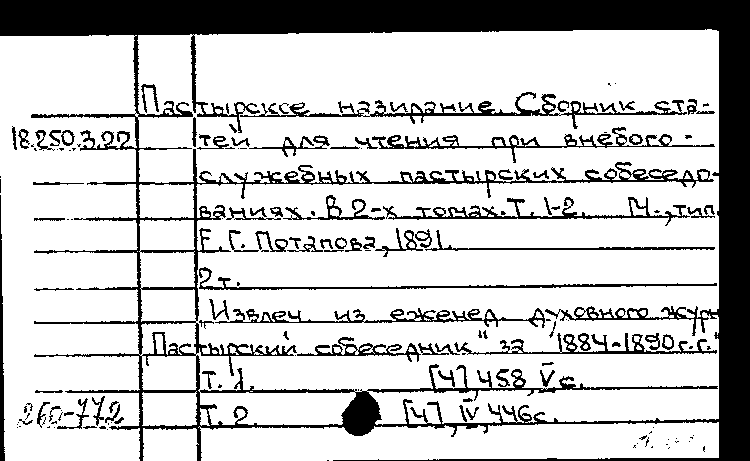 Пастырское назидание. Сборник ста-
18.250.3.22 тей для чтения при внебого-
служебных пастырских собеседо-
ваниях. В 2-х томах. Т. 1-2. М., тип.
Е. Г. Потапова, 1891.
2 т.
"Извлеч. из еженед. духовного журн
"Пастырский собеседник" за "1884-1890 г.г."
Т. 1. [4], 458, V с.
260-772 Т. 2. [4], IV, 446 с.